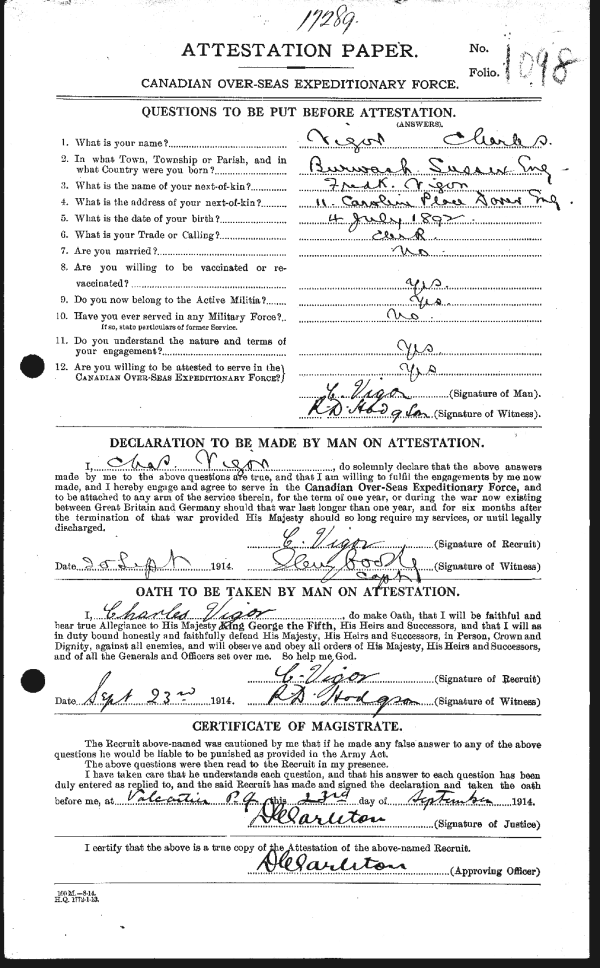 17289.
ATTESTATION PAPER.
No. 1098
Folio.
CANADIAN OVER-SEAS EXPEDITIONARY FORCE.
QUESTIONS TO BE PUT BEFORE ATTESTATION.
(ANSWERS).
1. What is your name? Vigor Charles.
2. In what Town, Township or Parish, and in
what Country were you born? Burwash Sussex Eng
3. What is the name of your next-of-kin? Fredk. Vigor
4. What is the address of your next-of-kin? 11 Caroline Place Dover Eng.
5. What is the date of your birth? 4 July 1892
6. What is your Trade or Calling? Clerk
7. Are you married? No
8. Are you willing to be vaccinated or re-
vaccinated? Yes.
9. Do you now belong to the Active Militia? Yes.
10. Have you ever served in any Military Force? No
If so, state particulars of former Service.
11. Do you understand the nature and terms of
your engagement? Yes
12. Are you willing to be attested to serve in the
CANADIAN OVER-SEAS EXPEDITIONARY FORCE? Yes
C. Vigor (Signature of Man).
R D Hodgson (Signature of Witness).
DECLARATION TO BE MADE BY MAN ON ATTESTATION.
I, Chas. Vigor, do solemnly declare that the above answers
made by me to the above questions are true, and that I am willing to fulfil the engagements by me now
made, and I hereby engage and agree to serve in the Canadian Over-Seas Expeditionary Force, and
to be attached to any arm of the service therein, for the term of one year, or during the war now existing
between Great Britain and Germany should that war last longer than one year, and for six months after
the termination of that war provided His Majesty should so long require my services, or until legally
discharged.
C. Vigor (Signature of Recruit)
Date 20 Sept 1914. Capt (Signature of Witness)
OATH TO BE TAKEN BY MAN ON ATTESTATION.
I, Charles Vigor, do make Oath, that I will be faithful and
bear true Allegiance to His Majesty King George the Fifth, His Heirs and Successors, and that I will as
in duty bound honestly and faithfully defend His Majesty, His Heirs and Successors, in Person, Crown and
Dignity, against all enemies, and will observe and obey all orders of His Majesty, His Heirs and Successors,
and of all the Generals and Officers set over me. So help me God.
C. Vigor (Signature of Recruit)
Date Sept 23rd 1914. R D Hodgson (Signature of Witness)
CERTIFICATE OF MAGISTRATE.
The Recruit above-named was cautioned by me that if he made any false answer to any of the above
questions he would be liable to be punished as provided in the Army Act.
The above questions were then read to the Recruit in my presence.
I have taken care that he understands each question, and that his answer to each question has been
duly entered as replied to, and the said Recruit has made and signed the declaration and taken the oath
before me, at Valcartier P.Q. this 23rd day of September 1914.
D Carleton (Signature of Justice)
I certify that the above is a true copy of the Attestation of the above-named Recruit.
D Carleton (Approving Officer)
100 M.—8-14.
H.Q. 1772-1-13.